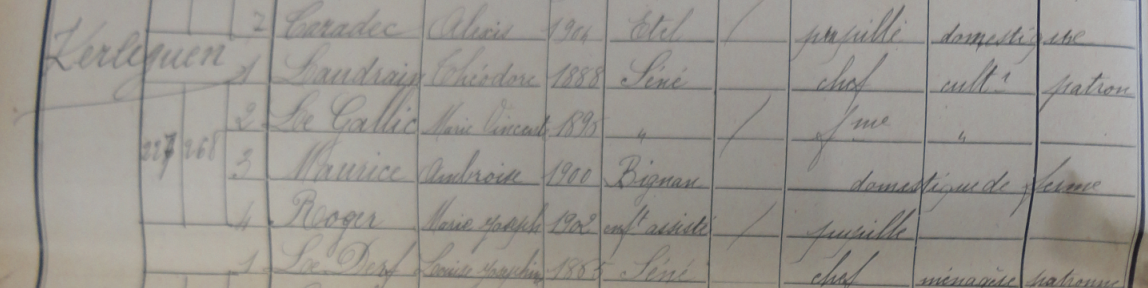 2 Caradec Alexis 1904 Etel / pupille domestique
Kerleguen
1 Landrain Théodore 1888 Séné chef cultr patron
2 Le Gallic Marie Vincente 1895 " / fme "
227 268
3 Maurice Ambroise 1900 Bignan domestique de ferme
4 Roger Marie Joseph 1902 enft assisté / pupille
1 Le Derf Louise Joséphine 1865 Séné chef ménagère patronne